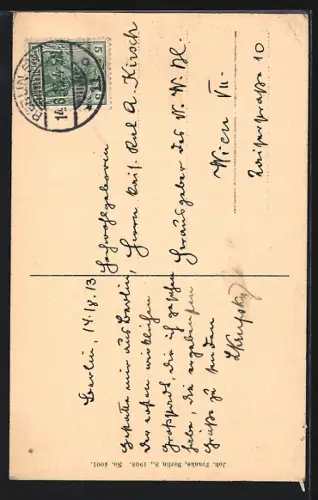 BERLIN
14.8
5
Berlin, 14./8. 13
gestatte mir aus Berlin,
der ersten wirklichen
Großstadt, die ich gesehen
habe, die ergebensten
Grüße zu senden
Hochwohlgeboren
Herrn Kais. Rat A. Kirsch
Herausgeber des N. W. Bl.
Wien VII.
Kaiserstraße 10
Joh. Franke, Berlin S., 1908. No. 4001.